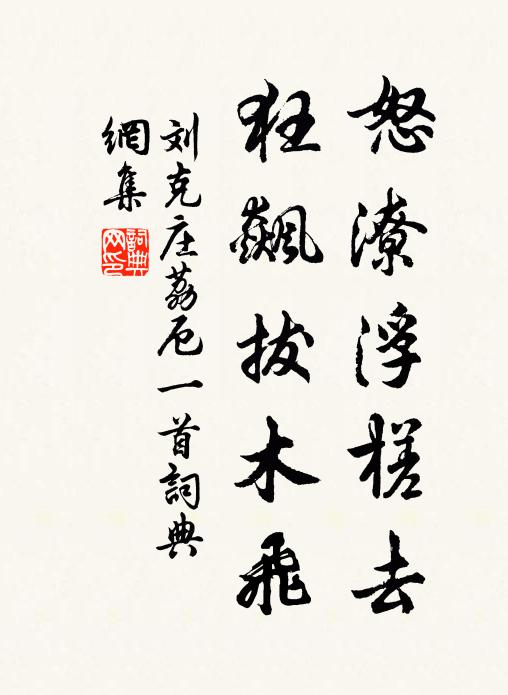 怒潦浮槎去
狂飙拔木飛
刘克庄荔厄一首詞典
網集
詞典網印